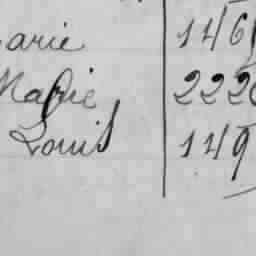 arie 146
Marie 222
Louis 149